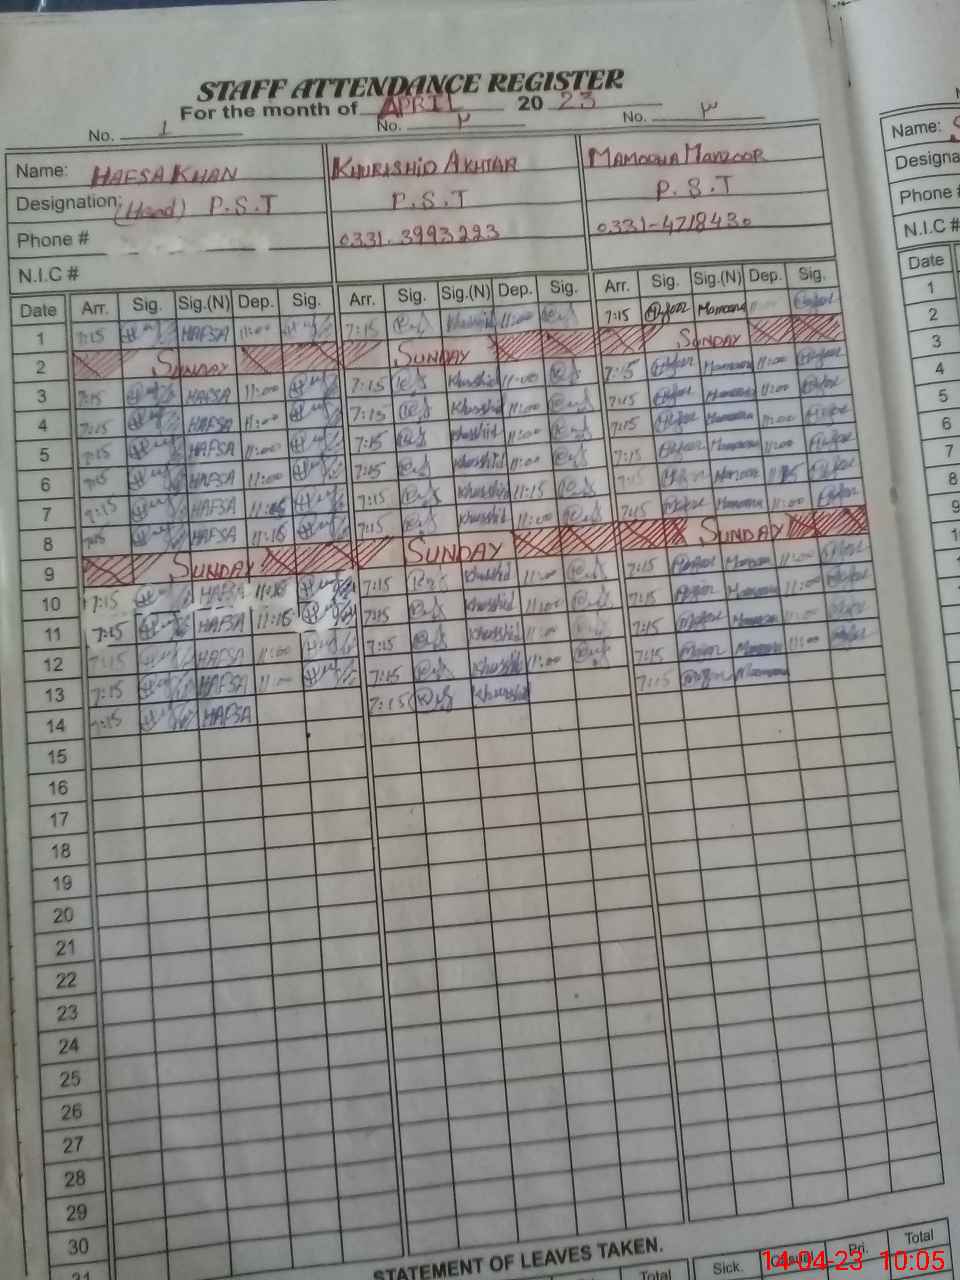 STAFF ATTENDANCE REGISTER
For the month of APRIL 20 23
No. 1 No. ۲ No. ۳
Name: HAFSA KHAN KHURSHID AKHTAR MAMOONA MANZOOR Name:
Designation: (Head) P.S.T P.S.T P.S.T Designa
Phone # 0331-3993223 0331-4718430 Phone #
N.I.C # N.I.C #
Date Arr. Sig. Sig.(N) Dep. Sig. Arr. Sig. Sig.(N) Dep. Sig. Arr. Sig. Sig.(N) Dep. Sig. Date
1 7:15 HAFSA 11:00 7:15 Khurshid 11:00 7:15 Mamoona 1
2 SUNDAY SUNDAY SUNDAY 2
3 7:15 HAFSA 11:00 7:15 Khurshid 11:00 7:15 Mamoona 11:00 3
4 7:15 HAFSA 11:00 7:15 Khurshid 11:00 7:15 Mamoona 11:00 4
5 7:15 HAFSA 11:00 7:15 Khurshid 11:00 7:15 Mamoona 11:00 5
6 7:15 HAFSA 11:00 7:15 Khurshid 11:00 7:15 Mamoona 11:00 6
7 7:15 HAFSA 7:15 Khurshid 11:15 7:15 Mamoona 7
8 7:15 HAFSA 7:15 Khurshid 11:00 7:15 Mamoona 11:00 8
9 SUNDAY SUNDAY SUNDAY 9
10 7:15 HAFSA 7:15 Khurshid 11:00 7:15 Mamoona 11:00
11 7:15 HAFSA 7:15 Khurshid 11:00 7:15 Mamoona 11:00
12 7:15 HAFSA 11:00 7:15 Khurshid 11:00 7:15 Mamoona 11:00
13 7:15 HAFSA 11:00 7:15 Khurshid 11:00 7:15 Mamoona 11:00
14 7:15 HAFSA 7:15 Khurshid 7:15 Mamoona
15
16
17
18
19
20
21
22
23
24
25
26
27
28
29
30
31 STATEMENT OF LEAVES TAKEN.
Total Sick. Pri. Total
14-04-23 10:05